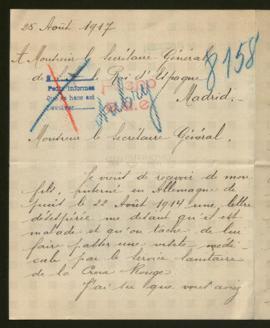 25 Août 1917
8158
A Monsieur le Secrétaire Général
de Roi d'Espagne
Pedir informes
Que se hará est
Madrid.
Monsieur le Secrétaire Général.
Je viens de recevoir de mon
fils, interné en Allemagne de
puis le 22 Août 1914 une lettre
désespérée me disant qu'il est
malade et qu'on tâche de lui
faire passer une visite médi
cale par le service sanitaire
de la Croix Rouge
J'ai lu que vous